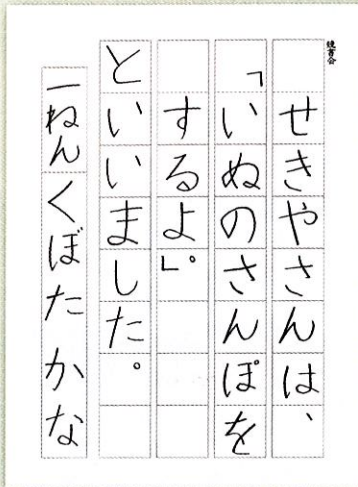 せきやさんは、
「いぬのさんぽを
するよ。」
といいました。
一ねん くぼた かな